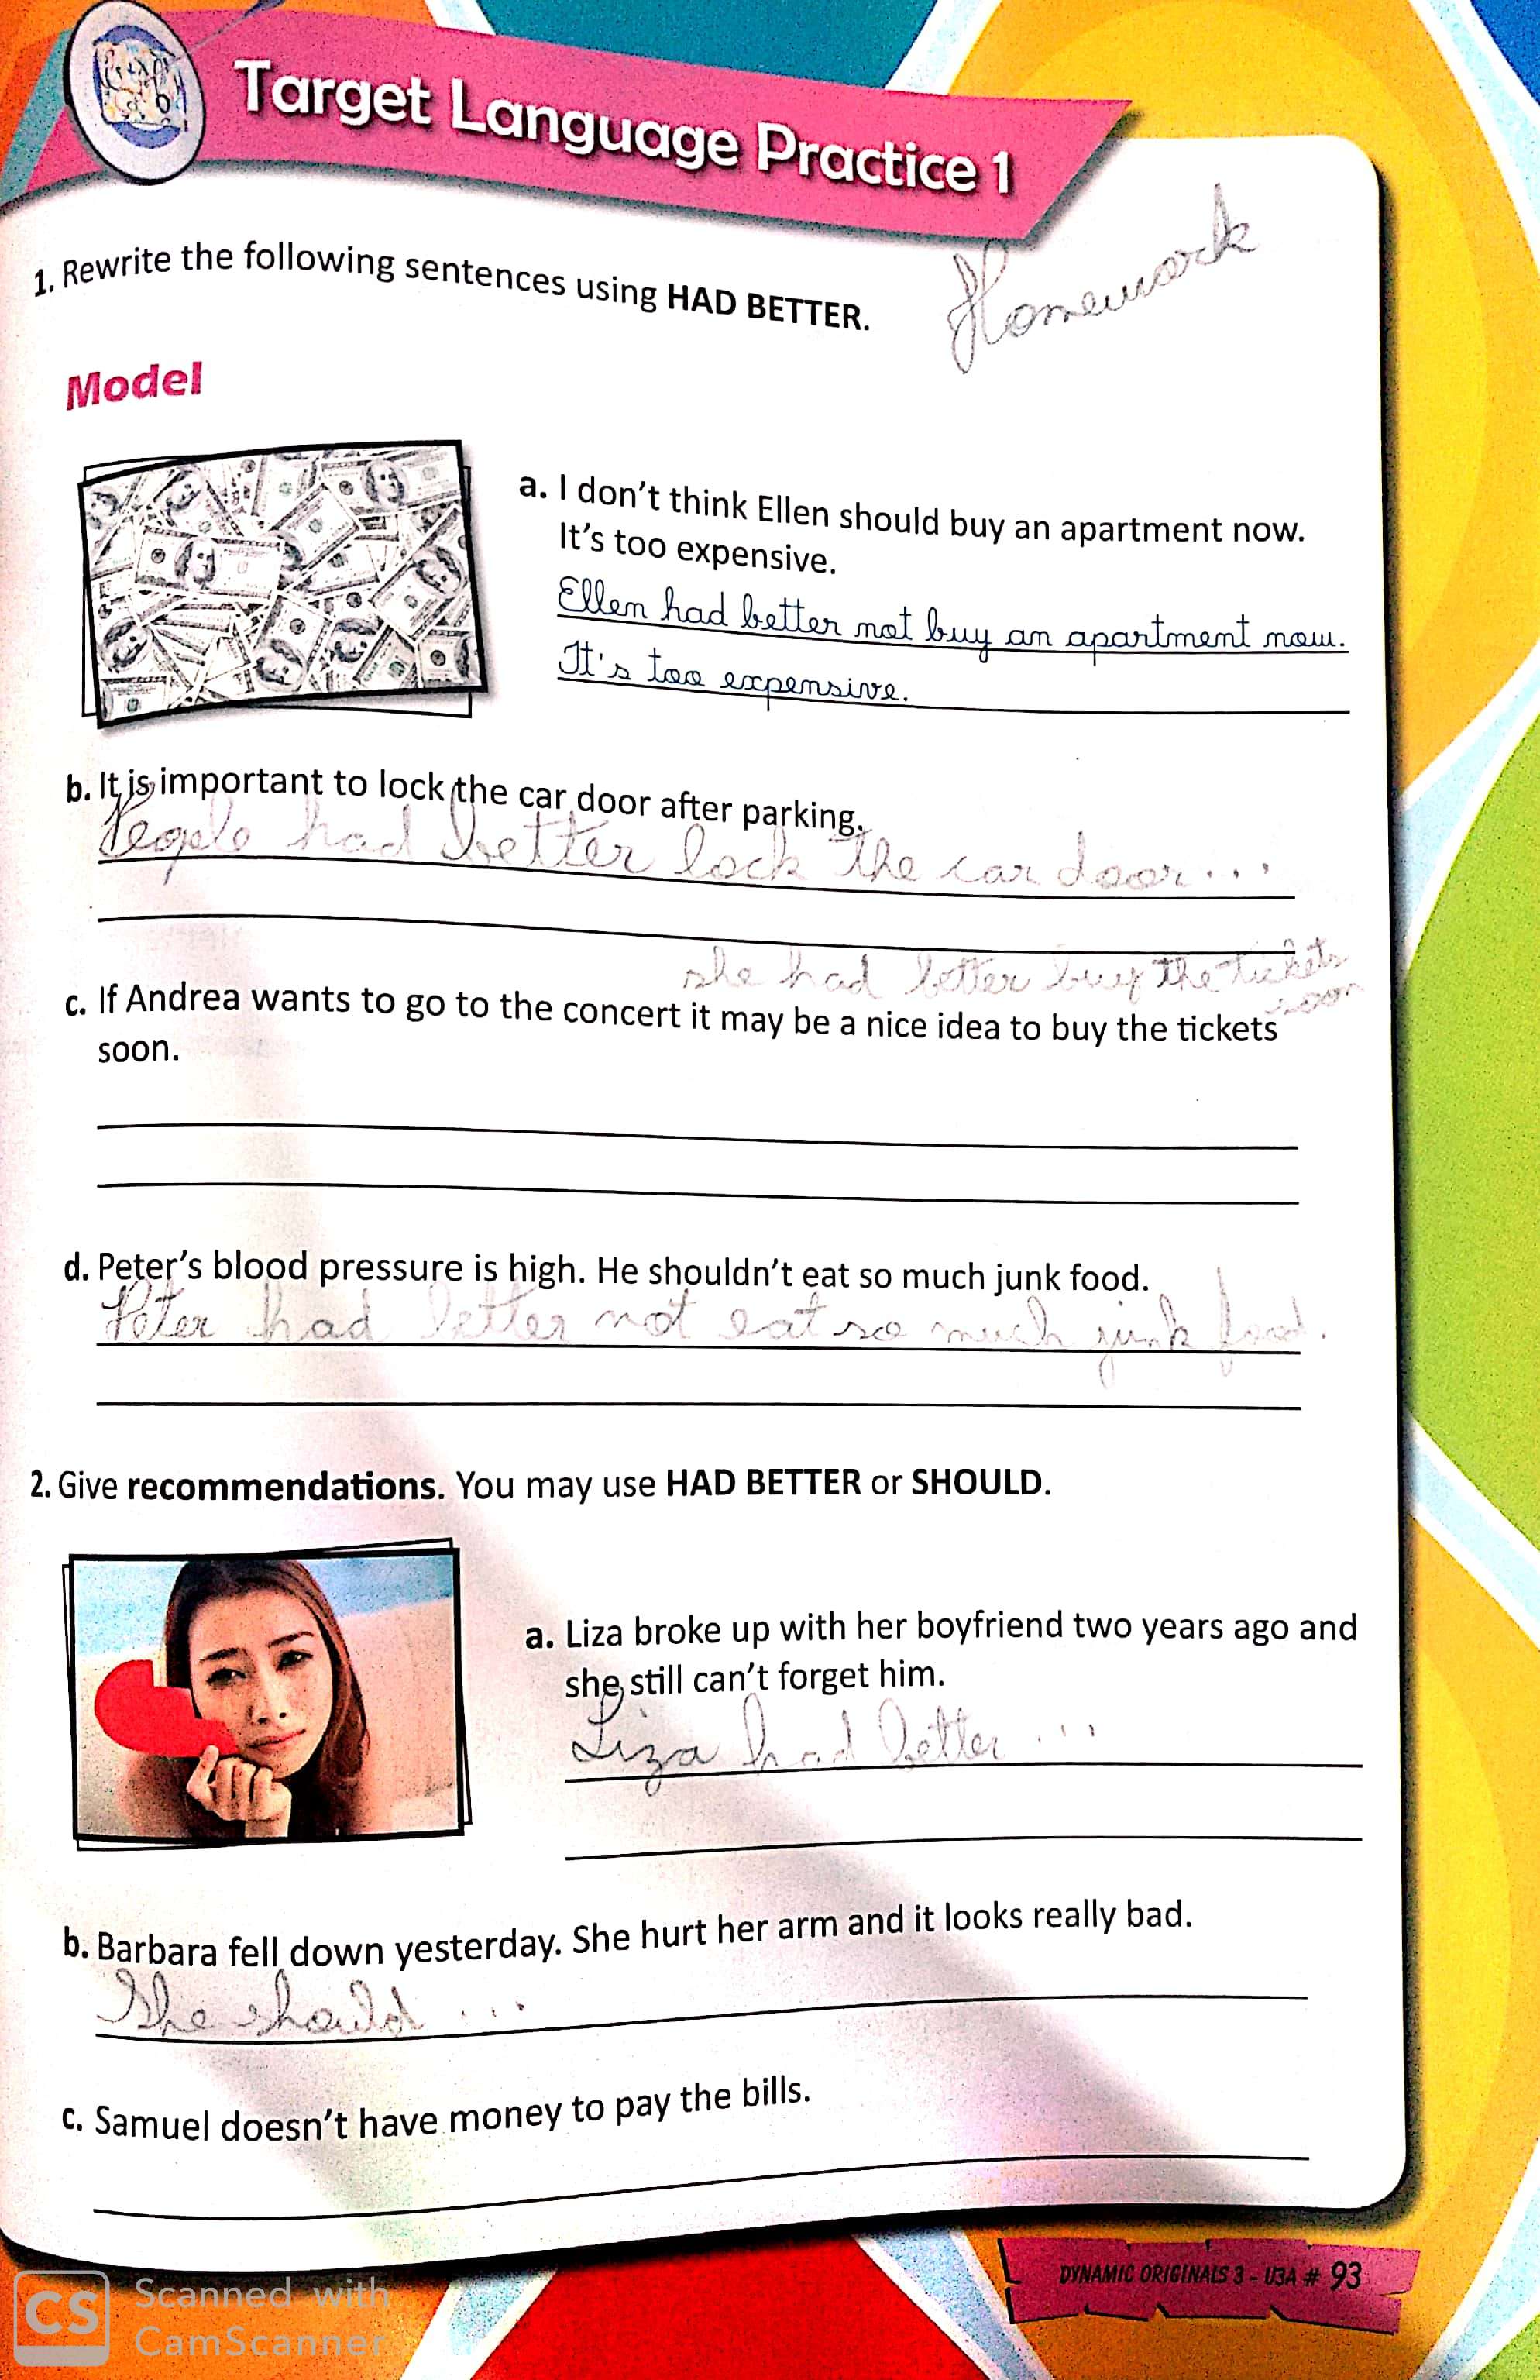 Target Language Practice 1
1. Rewrite the following sentences using HAD BETTER.
Homework
Model
a. I don't think Ellen should buy an apartment now.
It's too expensive.
Ellen had better not buy an apartment now.
It's too expensive.
b. It is important to lock the car door after parking.
People had better lock the car door...
she had better buy the tickets
soon
c. If Andrea wants to go to the concert it may be a nice idea to buy the tickets
soon.
d. Peter's blood pressure is high. He shouldn't eat so much junk food.
Peter had better not eat so much junk food.
2. Give recommendations. You may use HAD BETTER or SHOULD.
a. Liza broke up with her boyfriend two years ago and
she still can't forget him.
Liza had better ...
b. Barbara fell down yesterday. She hurt her arm and it looks really bad.
She should ...
c. Samuel doesn't have money to pay the bills.
DYNAMIC ORIGINALS 3 - U3A # 93
CS Scanned with
CamScanner